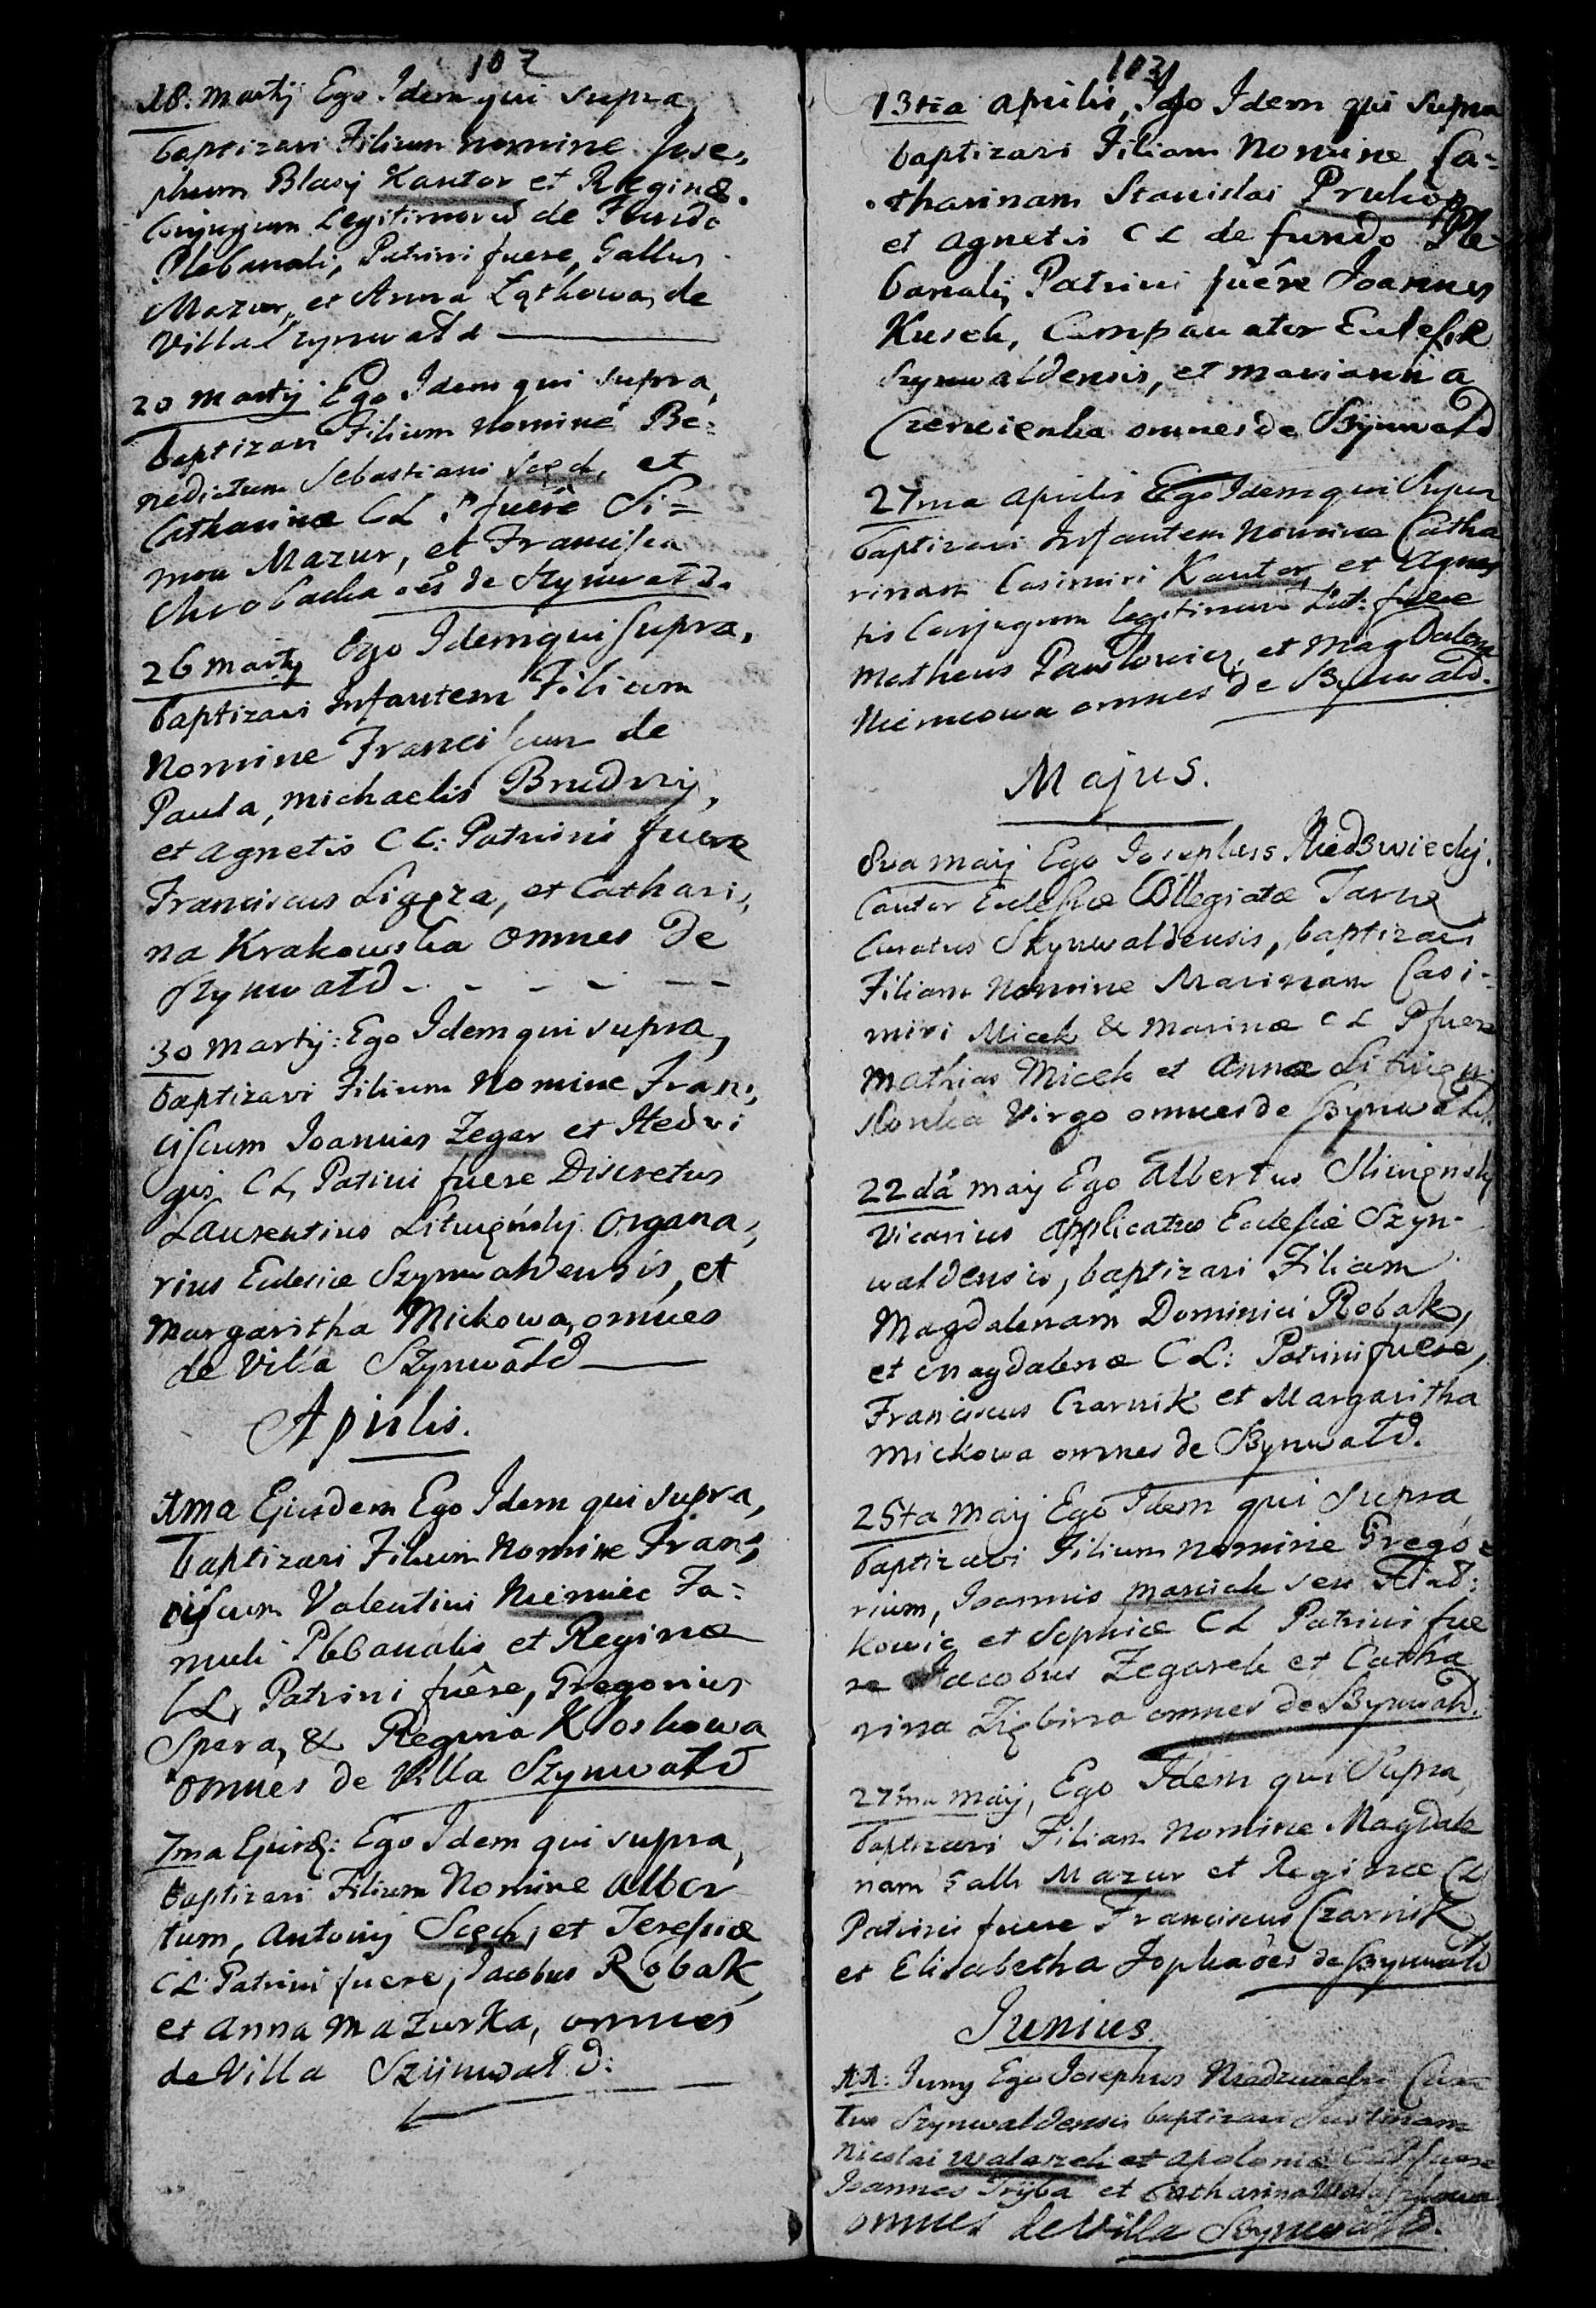 107
18. Martij Ego Idem qui supra,
baptizavi Filium nomine Jose,,
phum Blasij Kantor et Reginæ.
Conjugum Legitimorũ de Fundo
Plebanali, Patrini fuere, Gallus
Mazur, et Anna Łątkowa, de
Villa Szynwałd
20 Martij Ego Idem qui supra,
baptizavi Filium Nomine Be=
nedictum Sebastiani Socch, et
Catharinæ CL P fuêre Si=
mon Mazur, et Francisca
Chrobacka oẽs de Szynwałd.
26 Martij Ego Idem qui supra,
baptizavi Infantem Filium
Nomine Franciscum de
Paula, Michaelis Brudny,
et Agnetis CC: Patrini fuere
Franciscus Ligęza, et Cathari,,
na Krakowska omnes de
Szynwałd - - - - -
30 Martij: Ego Idem qui supra,
baptizavi Filium Nomine Fran,,
ciscum Joannis Zegar et Hedvi
gis CL, Patini fuere Discretus
Laurentius Lituęński Organa,,
rius Eclesiæ Szynwaldensis, et
Margaritha Mickowa, omnes
de Villa Szynwałd
Aprilis.
1ma Ejusdem Ego Idem qui supra,
baptizavi Filium Nomine Fran,,
ciscum Valentini Niemiec Fa=
muli Plebanalis et Reginæ
CL, Patrini fuêre, Gregorius
Spera, & Regina Kłoskowa
omnes de Villa Szynwałd
7ma Ejusd: Ego Idem qui supra,
baptizavi Filium Nomine Alber
tum, Antonij Socch, et Teresiæ
CL Patrini fuere, Jacobus Robak,
et Anna Mazurka, omnes
de Villa Szijnwałd:
103
13tia Aprilis, Ego Idem qui supra
baptizavi Filiam Nomine Ca=
tharinam Stanislai
et Agnetis CL de fundo Ple
banali, Patrini fuêre Joannes
Kusek, Campanator Eclesiæ
Szynwaldensis, et Marianna
omnes de Szynwałd
27ma Aprilis Ego Idem qui Supra
baptizavi Infantem Nomine Catha
rinam Casimiri Kantor, et Agne
tis Conjugum legitimorũ Pat: fuere
Matheus Pawłowicz, et Magdalena
Niemcowa omnes de Szynwałd.
Majus.
8va Maij Ego Josephus Niedzwiecky.
Cantor Eclesiæ Collegiatæ Tarnę
Curatus Szynwaldensis, baptizavi
Filiam Nomine Marinam Casi-
miri Micek & Marinæ CL P fuere
Mathias Micek et Anna Lituęn
Virgo omnes de Szynwałd.
22da Maij Ego Albertus
Vicarius Applicatus Eclesiæ Szyn-
waldensis, baptizavi Filiam
Magdalenam Dominici Robak,
et Magdalenæ CL: Patrini fuere,
Franciscus Czarnik et Margaritha
Mickowa omnes de Szynwałd.
25ta Maij Ego Idem qui Supra,
baptizavi Filium Nomine Grego=
rium, Joannis Marciak seu
et Sophiæ CL Patrini fue
re Jacobus Zegarek et Catha
rina omnes de Szynwałd.
27ma Maij, Ego Idem qui Supra,
baptizavi Filiam Nomine Magdale
nam Galli Mazur et Reginæ CL
Patrini fuere Franciscus Czarnik
et Elisabetha oẽs de Szynwałd
Junius.
11: Juny Ego Josephus Niedzwiecki Cura
tus Szynwaldensis baptizavi Justinam
Nicolai Walaszek et Apoloniæ CL P fuere
Joannes Tryba et Catharina
omnes de Villa Szynwałd.